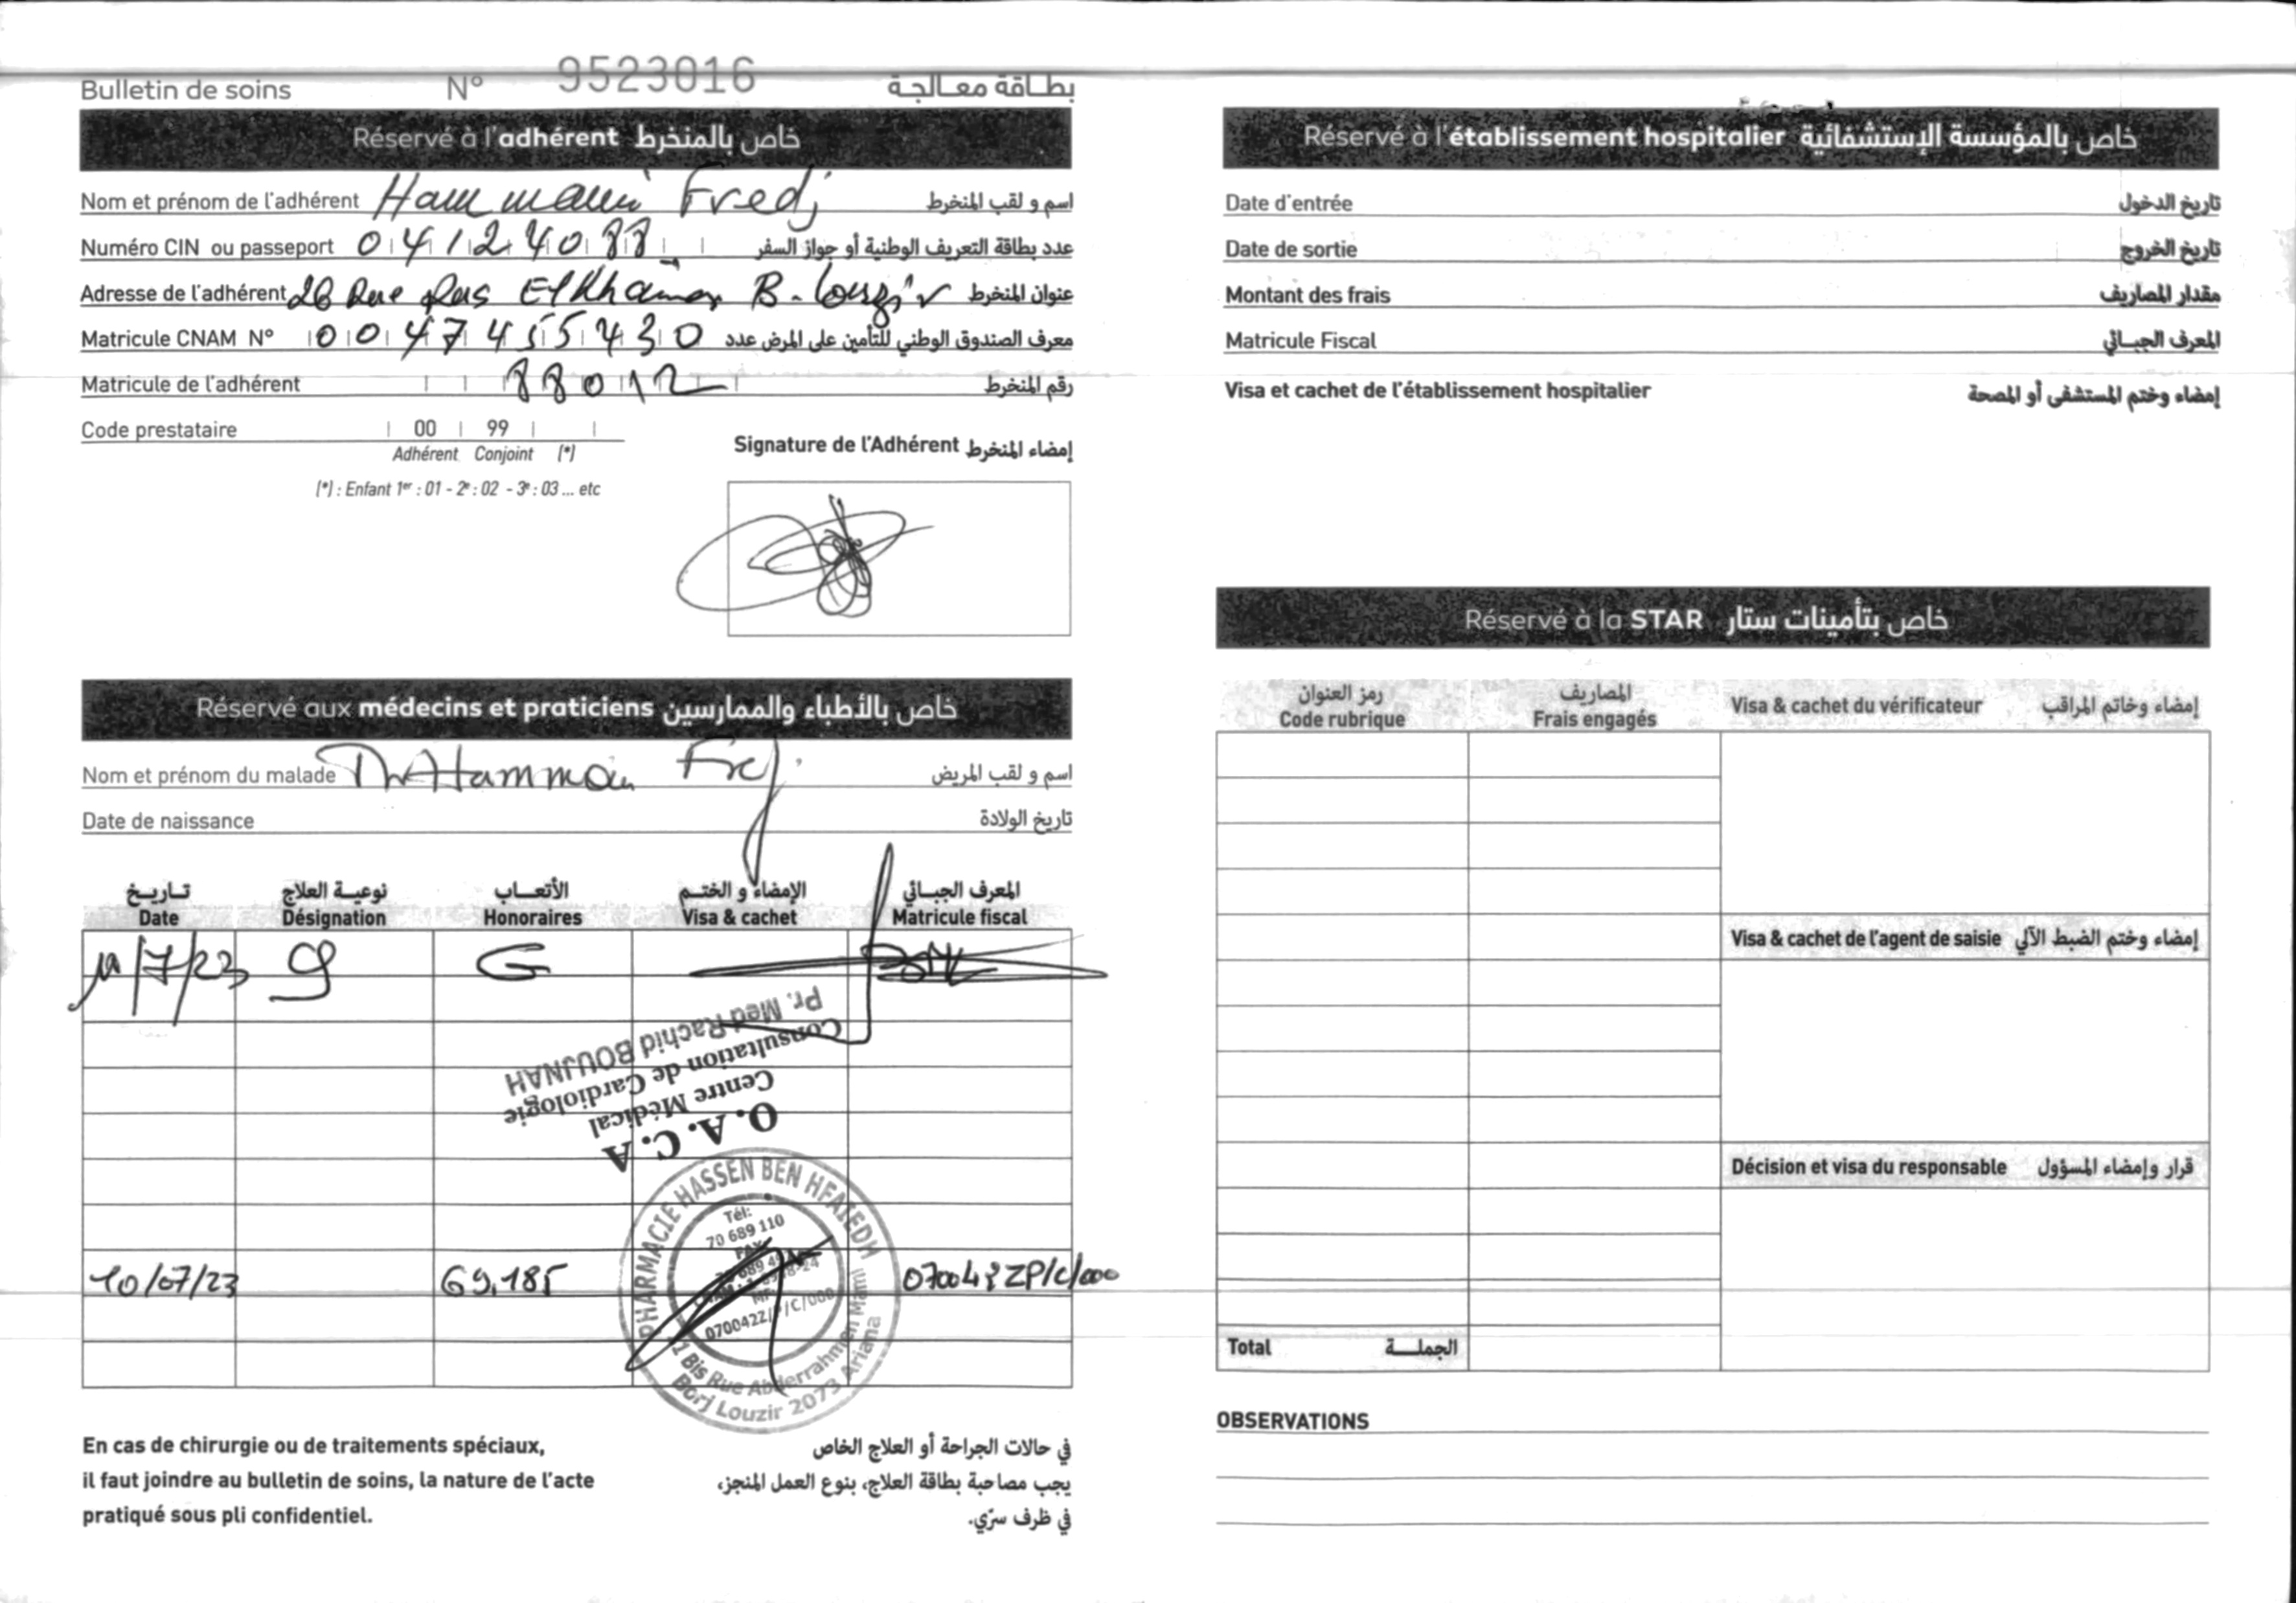 Bulletin de soins N° 9523016 بطاقة معالجة
Réservé à l'adhérent خاص بالمنخرط
Nom et prénom de l'adhérent Hammami Fredj اسم و لقب المنخرط
Numéro CIN ou passeport 04124088 عدد بطاقة التعريف الوطنية أو جواز السفر
Adresse de l'adhérent 26 Rue Ras El Khaima B-Louzir عنوان المنخرط
Matricule CNAM N° 0047455430 معرف الصندوق الوطني للتأمين على المرض عدد
Matricule de l'adhérent 88012 رقم المنخرط
Code prestataire 00 99
Adhérent Conjoint (*)
(*) : Enfant 1er : 01 - 2e : 02 - 3e : 03 ... etc
Signature de l'Adhérent إمضاء المنخرط
Réservé aux médecins et praticiens خاص بالأطباء والممارسين
Nom et prénom du malade Hammami اسم و لقب المريض
Date de naissance تاريخ الولادة
تاريخ نوعية العلاج الأتعاب الإمضاء و الختم المعرف الجبائي
Date Désignation Honoraires Visa & cachet Matricule fiscal
/7/23 G
O.A.C.A
Centre Médical
Consultation de Cardiologie
Pr. Med Rachid BOUJNAH
PHARMACIE HASSEN BEN HFAIEDH
Tél:
70 689 110
FAX
MF:
070042Z/P/C/000
Bis Rue Abderrahmen Mami
Borj Louzir 2073 Ariana
10/07/23 69,185 070042ZP/C/000
En cas de chirurgie ou de traitements spéciaux,
il faut joindre au bulletin de soins, la nature de l'acte
pratiqué sous pli confidentiel.
في حالات الجراحة أو العلاج الخاص
يجب مصاحبة بطاقة العلاج، بنوع العمل المنجز،
في ظرف سرّي.
Réservé à l'établissement hospitalier خاص بالمؤسسة الإستشفائية
Date d'entrée تاريخ الدخول
Date de sortie تاريخ الخروج
Montant des frais مقدار المصاريف
Matricule Fiscal المعرف الجبائي
Visa et cachet de l'établissement hospitalier إمضاء وختم المستشفى أو المصحة
Réservé à la STAR خاص بتأمينات ستار
رمز العنوان المصاريف
Code rubrique Frais engagés Visa & cachet du vérificateur إمضاء وخاتم المراقب
Visa & cachet de l'agent de saisie إمضاء وختم الضبط الآلي
Décision et visa du responsable قرار وإمضاء المسؤول
Total الجملة
OBSERVATIONS